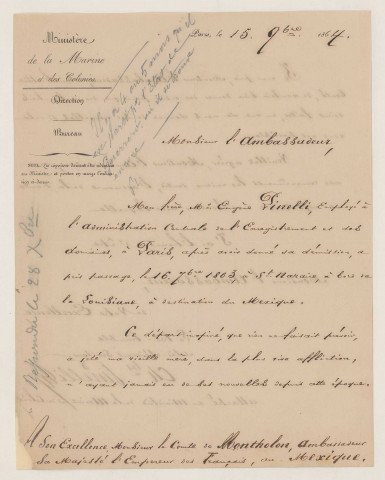 Ministère
de la Marine
et des Colonies
Direction
Bureau
Paris, le 15 9bre 1864.
Il y a 4 ou 5 mois qu'il
Monsieur l'Ambassadeur,
Mon frère, Mr. Eugène Pinelli, Employé à
l'administration Centrale de l'Enregistrement et des
domaines, à Paris, après avoir donné sa démission, a
pris passage, le 16 7bre 1863, à St. Nazaire, à bord de
la Louisiane, à destination du Mexique.
Ce départ inopiné, que rien ne faisait prévoir,
a jeté ma vieille mère, dans la plus vive affliction,
n'ayant jamais eu de ses nouvelles depuis cette époque.
Répondu le 28 Xbre
A Son Excellence, Monsieur le Comte de Montholon, Ambassadeur
de Sa Majesté l'Empereur des Français, au Mexique.